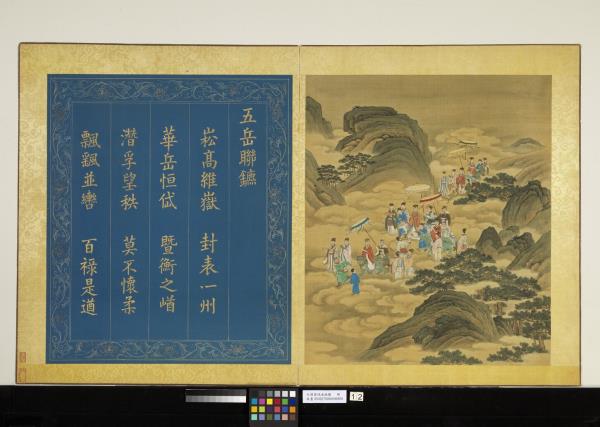 五岳聯鑣
崧高維嶽 封表一州
華岳恒岱 暨衡之
潛孚望秩 莫不懷柔
飄飄並轡 百祿是遒
12